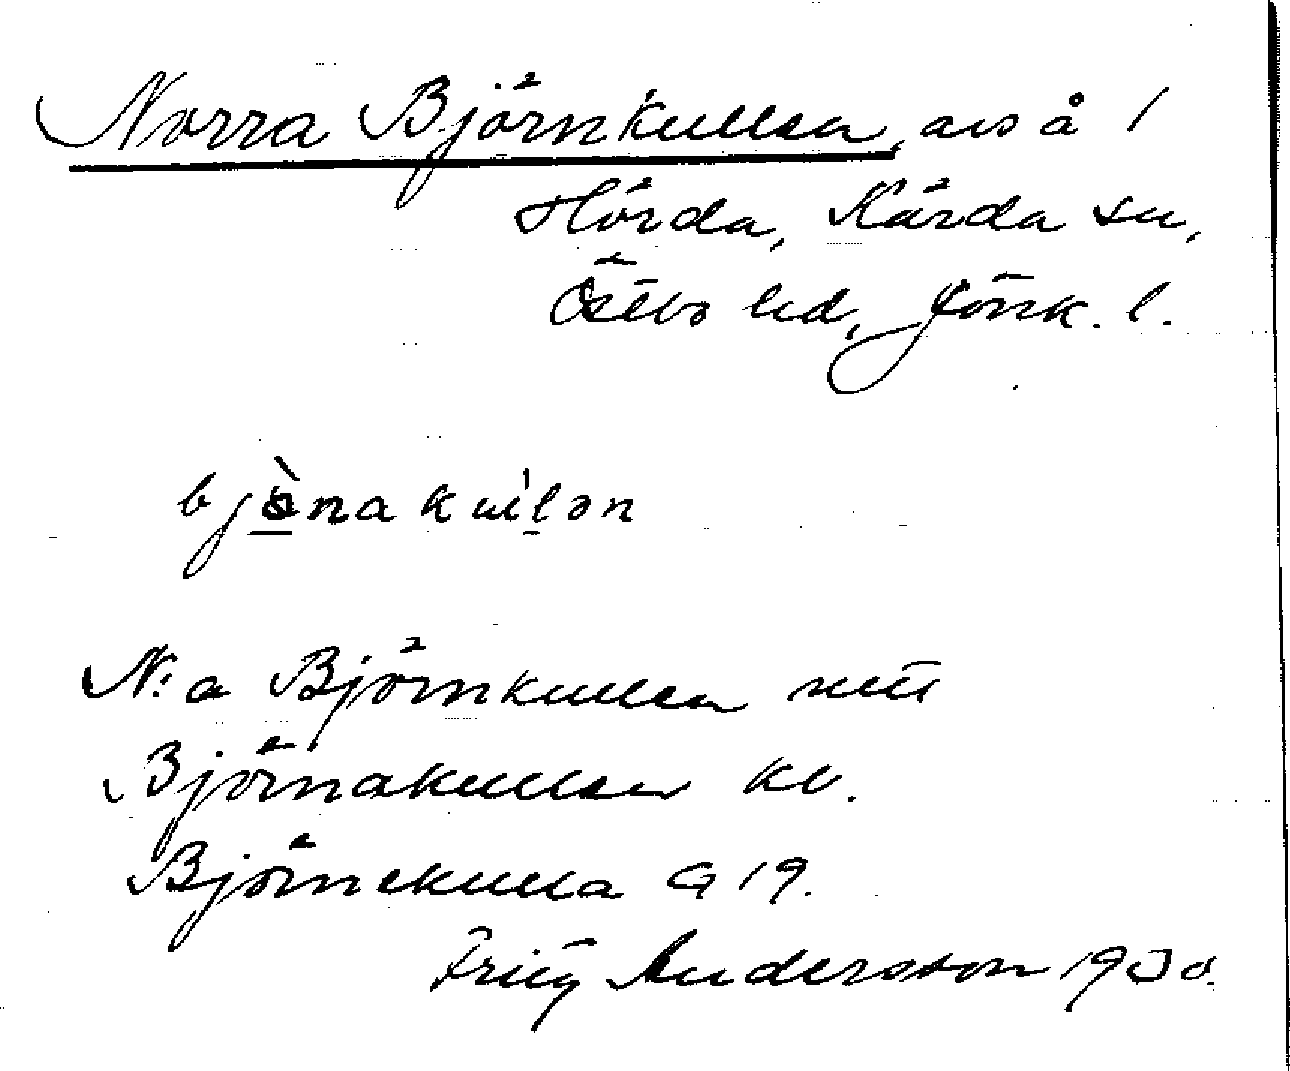 Norra Björnkullen, avs å 1
Hörda, Kärda sn,
Östbo hd, Jönk. l.
bjönakulən
N:a Björnkullen
Björnakullen kb.
Björnekulla G 19.
Fritz Andersson 1930.